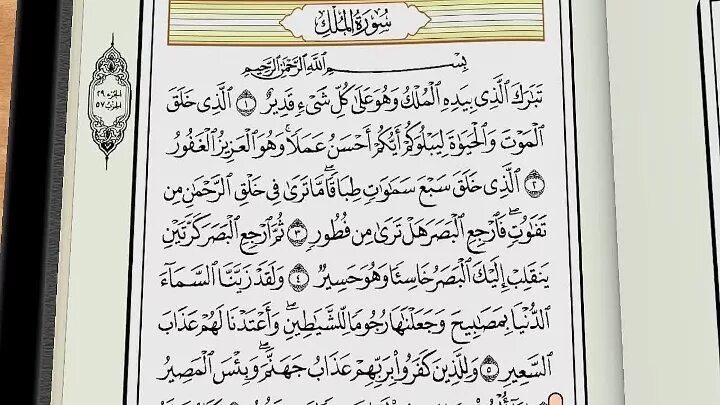 سُورَةُ المُلْكِ
بِسْمِ اللَّهِ الرَّحْمَٰنِ الرَّحِيمِ
تَبَارَكَ الَّذِي بِيَدِهِ الْمُلْكُ وَهُوَ عَلَىٰ كُلِّ شَيْءٍ قَدِيرٌ ١ الَّذِي خَلَقَ
الْمَوْتَ وَالْحَيَاةَ لِيَبْلُوَكُمْ أَيُّكُمْ أَحْسَنُ عَمَلًا ۚ وَهُوَ الْعَزِيزُ الْغَفُورُ
٢ الَّذِي خَلَقَ سَبْعَ سَمَاوَاتٍ طِبَاقًا ۖ مَّا تَرَىٰ فِي خَلْقِ الرَّحْمَٰنِ مِن
تَفَاوُتٍ ۖ فَارْجِعِ الْبَصَرَ هَلْ تَرَىٰ مِن فُطُورٍ ٣ ثُمَّ ارْجِعِ الْبَصَرَ كَرَّتَيْنِ
يَنقَلِبْ إِلَيْكَ الْبَصَرُ خَاسِئًا وَهُوَ حَسِيرٌ ٤ وَلَقَدْ زَيَّنَّا السَّمَاءَ
الدُّنْيَا بِمَصَابِيحَ وَجَعَلْنَاهَا رُجُومًا لِّلشَّيَاطِينِ ۖ وَأَعْتَدْنَا لَهُمْ عَذَابَ
السَّعِيرِ ٥ وَلِلَّذِينَ كَفَرُوا بِرَبِّهِمْ عَذَابُ جَهَنَّمَ ۖ وَبِئْسَ الْمَصِيرُ
الجزء ٢٩
الحزب ٥٧